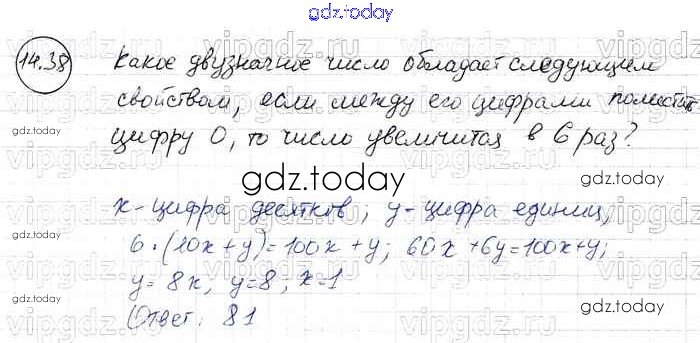 gdz.today
14.38 Какое двузначное число обладает следующим
свойством, если между его цифрами поместить
цифру 0, то число увеличится в 6 раз?
gdz.today
x - цифра десятков; y - цифра единиц,
6 · (10x + y) = 100x + y; 60x + 6y = 100x + y;
y = 8x; y = 8; x = 1
Ответ: 81
gdz.today